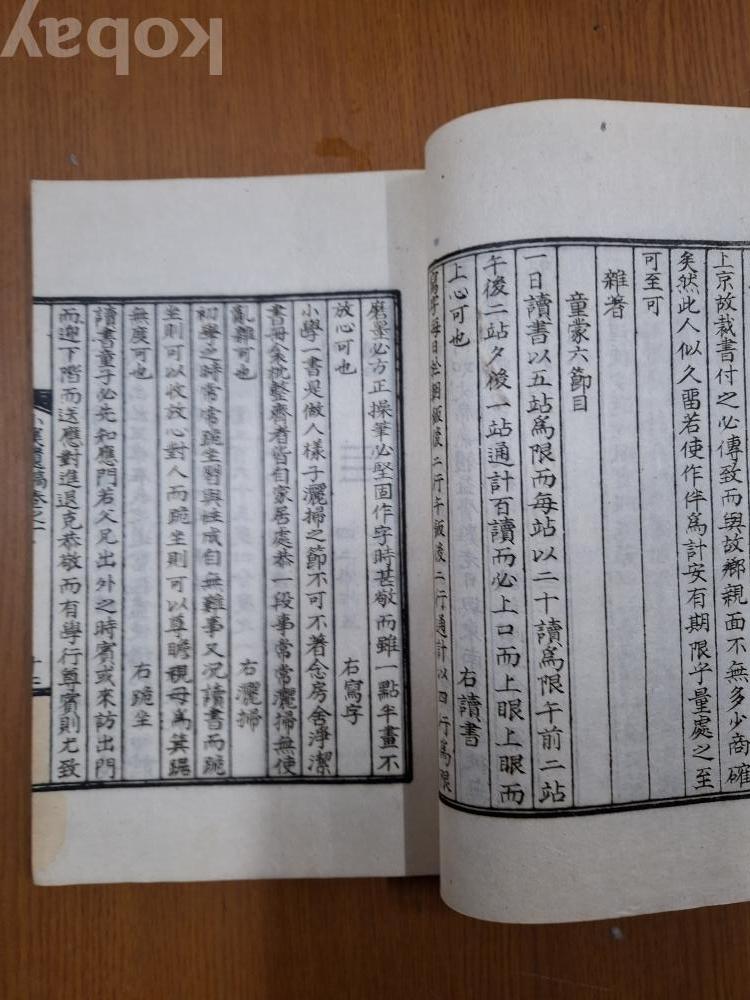 kobay
上京故裁書付之必傳致而與故鄉親面不無多少商確
矣然此人似久留若使作伴爲計安有期限乎量處之至
可至可
雜著
童蒙六節目
一日讀書以五站爲限而每站以二十讀爲限午前二站
午後二站夕後一站通計百讀而必上口而上眼上眼而
上心可也 右讀書
寫字每日 飯後二行午飯後二行通計以四行爲限
磨墨必方正操筆必堅固作字時甚敬而雖一點半畫不
放心可也 右寫字
小學一書是做人樣子灑掃之節不可不著念房舍淨潔
書冊余枕整齊者皆自家居處恭一段事常常灑掃無使
亂雜可也 右灑掃
初學之時常常跪坐習與性成自無難事又況讀書而跪
坐則可以收放心對人而跪坐則可以尊瞻視毋爲箕踞
無度可也 右跪坐
讀書童子必先知應門若父兄出外之時賓或來訪出門
而迎下階而送應對進退克恭敬而有學行尊賓則尤致
遺稿卷之一
十二